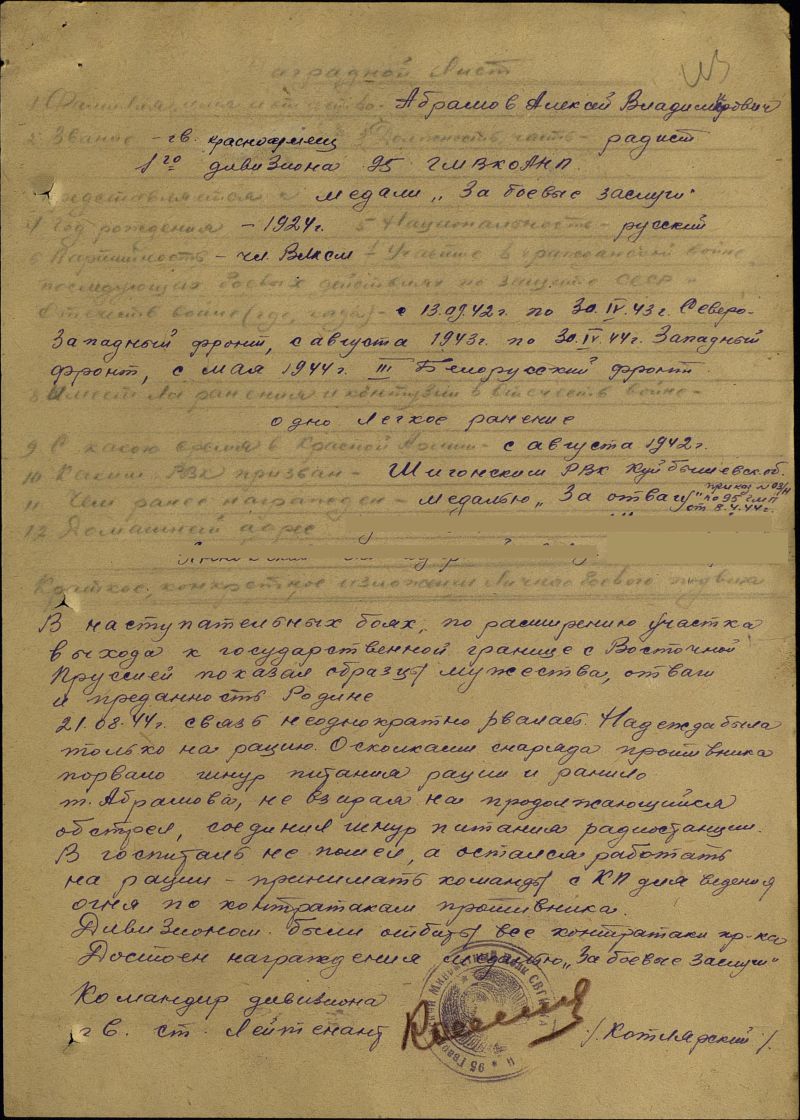 аградной Лист
1 Фамилия, имя и отчество - Абрамов Алексей Владимирович
2 Звание - гв. красноармеец 3 Должность, часть - радист
1го дивизиона 95 ГМВКОАНП
Представляется к медали „За боевые заслуги"
4 Год рождения - 1924г. 5 Национальность - русский
6 Партийность - чл ВЛКСМ 7 Участие в гражданской войне,
последующих боевых действиях по защите СССР и
отечеств войне (где, когда) - с 13.09.42г. по 30.IV.43г. Северо-
Западный фронт, с августа 1943г. по 30.IV.44г. Западный
фронт, с мая 1944г. III Белорусский фронт
8 Имеет ли ранения и контузии в отечеств войне -
одно легкое ранение
9 С какого время в Красной Армии - с августа 1942г.
10 Каким РВК призван - Шигонским РВК Куйбышевск. об.
11 Чем ранее награжден - медалью „За отвагу" приказ № 03/н
по 95 гмп
от 8.4.44г.
12 Домашный адрес
Краткое, конкретное изложении личного боевого подвига
В наступательных боях, по расширению участка
выхода к государственной границе с Восточной
Пруссией показал образцы мужества, отваги
и преданность Родине
21.08.44г. связь неоднократно рвалась. Надежда была
только на рацию. Осколками снаряда противника
порвало шнур питания рации и ранило
т. Абрамова, не взирая на продолжающийся
обстрел, соединил шнур питания радиостанции.
В госпиталь не пошел, а остался работать
на рации - принимать команды с КП для ведения
огня по контратакам противника.
Дивизионом были отбиты все контратаки пр-ка
Достоен награждения медалью „За боевые заслуги"
Командир дивизиона
гв. ст. Лейтенант /Котлярский/.